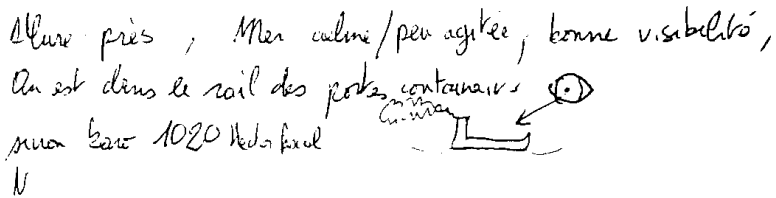 Allure près, Mer calme/peu agitée, bonne visibilité,
On est dans le rail des portes containairs
sinon baro 1020 Hectopascal
N